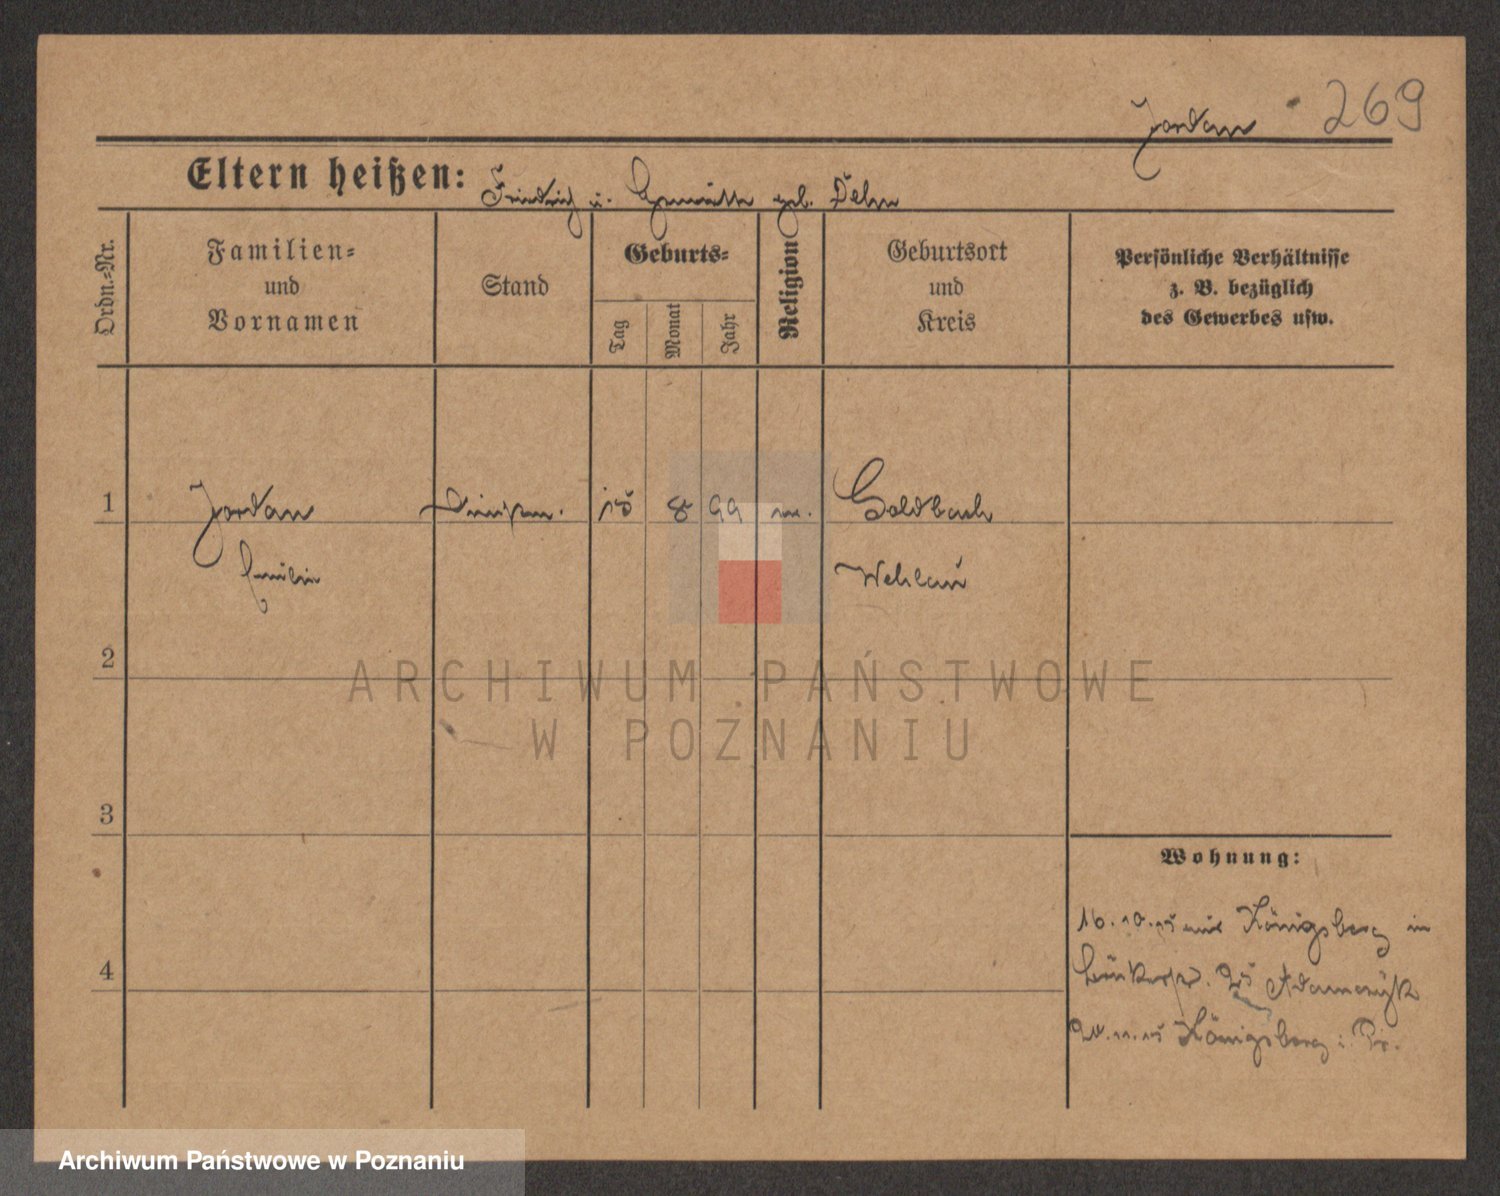 Jordan 269
Eltern heißen: Friedrich u. Henriette geb. Dehn
Ordn.-Nr.
Familien-
und
Vornamen
Stand
Geburts-
Tag
Monat
Jahr
Religion
Geburtsort
und
Kreis
Persönliche Verhältnisse
z. B. bezüglich
des Gewerbes usw.
1 Jordan 15 8 99 Goldbach
Emilie Wehlau
2
3
4
Wohnung:
16.10.15 aus Königsberg in
25
24.11.15 Königsberg i. Pr.
ARCHIWUM PAŃSTWOWE
W POZNANIU
Archiwum Państwowe w Poznaniu